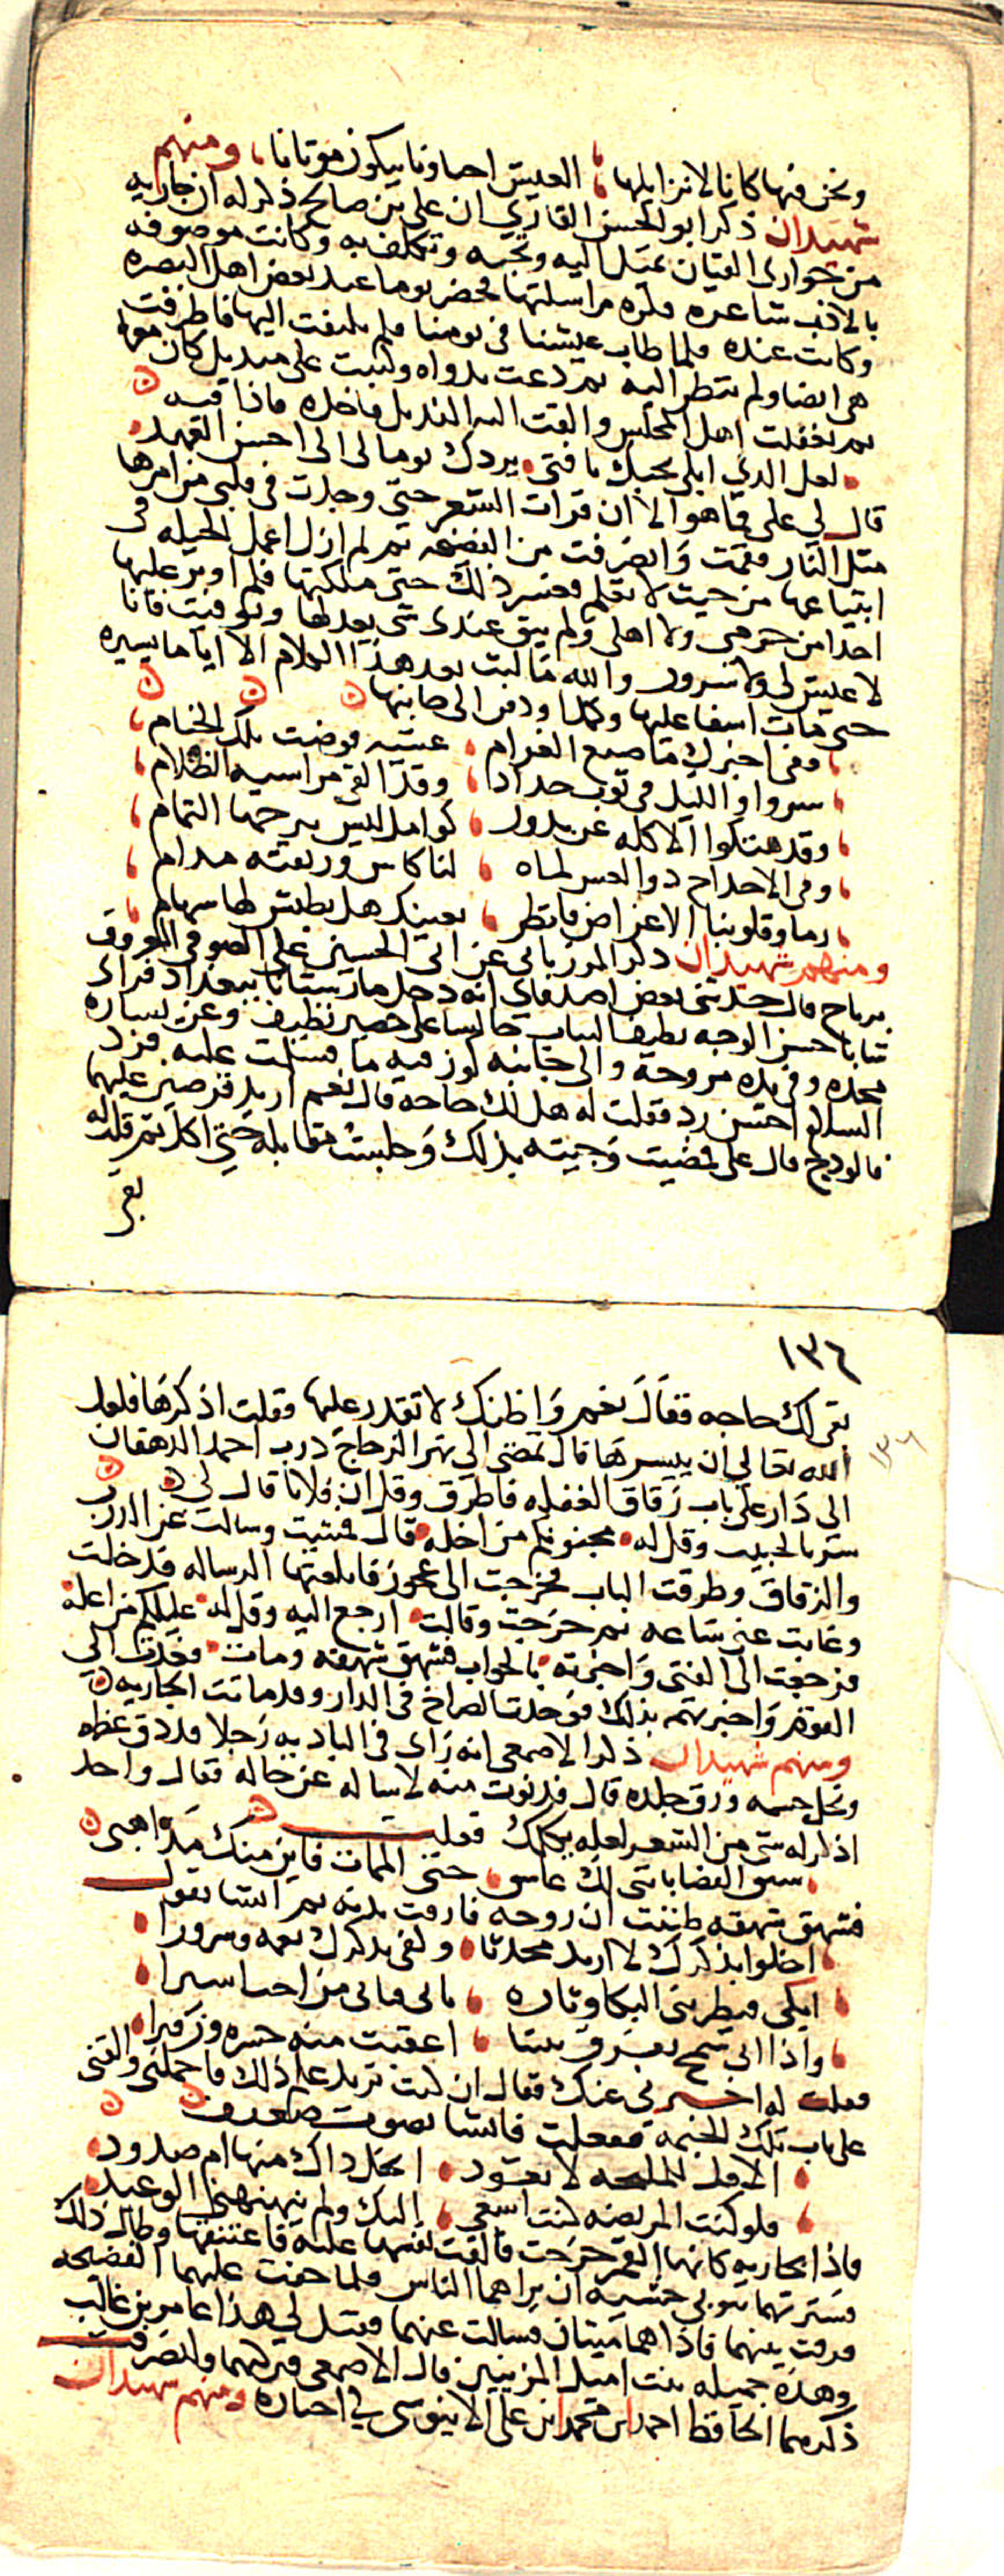 ونحن فيها كانا لانزايلها العيش احيا وفا بيكون موتانا ومنهم
شهيدان ذكر ابو الحسن القاري ان علي بن صالح ذكر له ان جاريه
من جواري القيان تميل اليه وتحبه وتكلف به وكانت موصوفه
بالادب شاعره فكره مراسلتها فحضر يوما عند بعض اهل البصره
وكانت عنده فلما طاب عيشنا في يومنا فلم يلتفت اليها فاطرقت
هي ايضا ولم تنظر اليه ثم دعت بدواه وكتبت على منديل كان معها
ثم تغفلت اهل المجلس والقت اليه المنديل فاخذه فاذا فيه
لعل الذي ابلى بحبك يا فتى يردك يوما لي الى احسن العهد
قال لي علي فما هو الا ان قرات الشعر حتى وجدت في قلبي من امرها
مثل النار فقمت وانصرفت من الفضيحه ثم لم ازل اعمل الحيله في
ابتياعها من حيث لا تعلم فعسر ذلك حتى ملكتها فلم اوثر عليها
احدا من حرمي ولا اهلي ولم يبق عندي شي يعدلها وتوفيت فانا
لا عيش لي ولا سرور والله ما لبث بعد هذا الكلام الا اياما يسيره
حتى مات اسفا عليها وكمدا ودفن الى جانبها
وفي اخبرك ما صنع الغرام عشيه قوضت تلك الخيام
سروا والليل في ثوب حدادا وقد القى مراسيه الظلام
وقد هتكوا الاكله عن بدور كوامل ليس يرحمها التمام
وفي الاحداح ذو العس لماه لنا كاس وريقته مدام
رما وقلوبنا الاعراض فانظر بعينك هل يطيش لها سهام
ومنهم شهيدان ذكر المرزباني عن ابي الحسين علي الصوفي المعروف
برباح قال حدثني بعض اصدقاي انه دخل مارستانا ببغداد فراى
شابا حسن الوجه نظيف الثياب جالسا على حصير نظيف وعن يساره
مخده وفي يده مروحه والى جانبه كوز فيه ما فسلمت عليه فرد
السلام احسن رد فقلت له هل لك حاجه قال نعم اريد قرصين عليهما
فالودج قال علي فمضيت وجيته بذلك وجلست مقابله حتى اكل ثم قلت له
بقي
١٣٦
بقي لك حاجه فقال نعم واظنك لا تقدر عليها فقلت اذكرها فلعل
١٣٦
الله تعالى ان ييسرها قال تمضي الى نهر الزجاج درب احمد الدهقان
الى دار على باب زقاق الغفله فاطرق وقل ان فلانا قال لي
مر بالحبيب وقل له مجنونكم من احله قال فمضيت وسالت عن الدرب
والزقاق وطرقت الباب فخرجت الى عجوز فابلغتها الرساله فدخلت
وغابت عني ساعه ثم خرجت وقالت ارجع اليه وقل له عليلكم من اعله
فرجعت الى الفتى واخبرته بالجواب فشهق شهقه ومات فعدت الي
القوم واخبرتهم بذلك فوجدت الصراخ في الدار وقد ماتت الجاريه
ومنهم شهيدان ذكر الاصمعي انه راى في الباديه رجلا قد دق عظمه
ونحل جسمه ورق جلده قال فدنوت منه لاساله عن حاله فقال واحد
اذكر له شي من الشعر لعله يكلمك فقلت
سبق القضا باني لك عاشق حتى الممات فاين منك مذاهبي
فشهق شهقه ظننت ان روحه فارقت بدنه ثم انشا يقول
اخلوا بذكرك لا اريد محدثا وكفى بذكرك نعمه وسرورا
ابكي فيطربني البكا وتاره يابى فياتي من احب اسيرا
واذا انى سمح بفرق بيننا اعقبت منه حسره وزفيرا
فقلت له اخبرني عنك فقال ان كنت تريد علم ذلك فاحملني والقني
على باب تلك الخيمه ففعلت فانشا بصوت ضعيف
الا ما للمليحه لا تعود ابخل ذاك منها ام صدود
فلو كنت المريضه كنت اسعى اليك ولم ينهنهني الوعيد
فاذا بجاريه كانها القمر خرجت فالقت نفسها عليه فاعتنقها وطال ذلك
فسترتهما بثوبي خشيه ان يراهما الناس فلما خفت عليهما الفضيحه
فرقت بينهما فاذا هما ميتان فسالت عنهما فقيل لي هذا عامر بن غالب
وهذه جميله بنت اميل المزنيين قال الاصمعي فتركتهما وانصرفت
ذكرهما الحافظ احمد بن محمد بن علي الابنوسي في اخباره ومنهم شهيدان